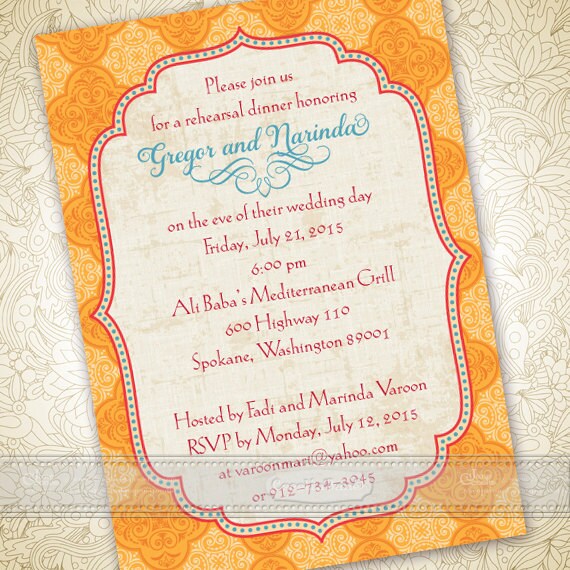 Please join us
for a rehearsal dinner honoring
Gregor and Narinda
on the eve of their wedding day
Friday, July 21, 2015
6:00 pm
Ali Baba's Mediterranean Grill
600 Highway 110
Spokane, Washington 89001
Hosted by Fadi and Marinda Varoon
RSVP by Monday, July 12, 2015
at varoonmari@yahoo.com
or 912-734-3945